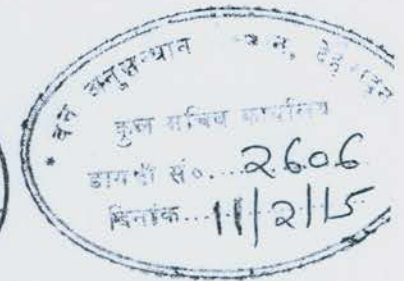 वन अनुसन्धान संस्थान, देहरादून
कुल सचिव कार्यालय
डायरी सं०... 2606
दिनांक... 11/2/15